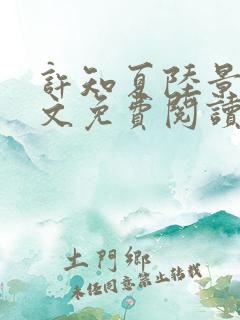 許知夏陸景
文免費閱讀
土門鄉
未經同意禁止轉載